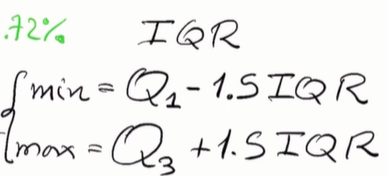 .72% IQR
min = Q₁ - 1.5 IQR
max = Q₃ + 1.5 IQR